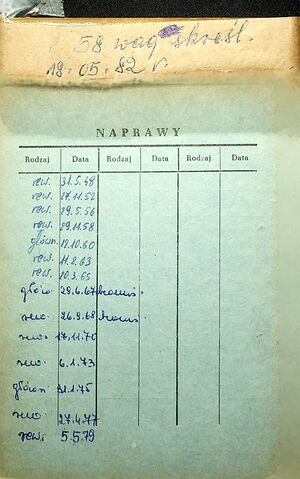 58 wag skreśl.
18.05.82 r.
NAPRAWY
Rodzaj Data Rodzaj Data Rodzaj Data
rew. 31.5.48
rew. 27.11.52
rew. 29.5.56
rew. 29.11.58
główn. 19.10.60
rew. 11.2.63
rew. 20.3.65
główn 28.6.67
rew. 26.9.68
rew. 17.11.70
rew. 6.1.73
główn 31.1.75
rew 27.4.77
rew. 5.5.79